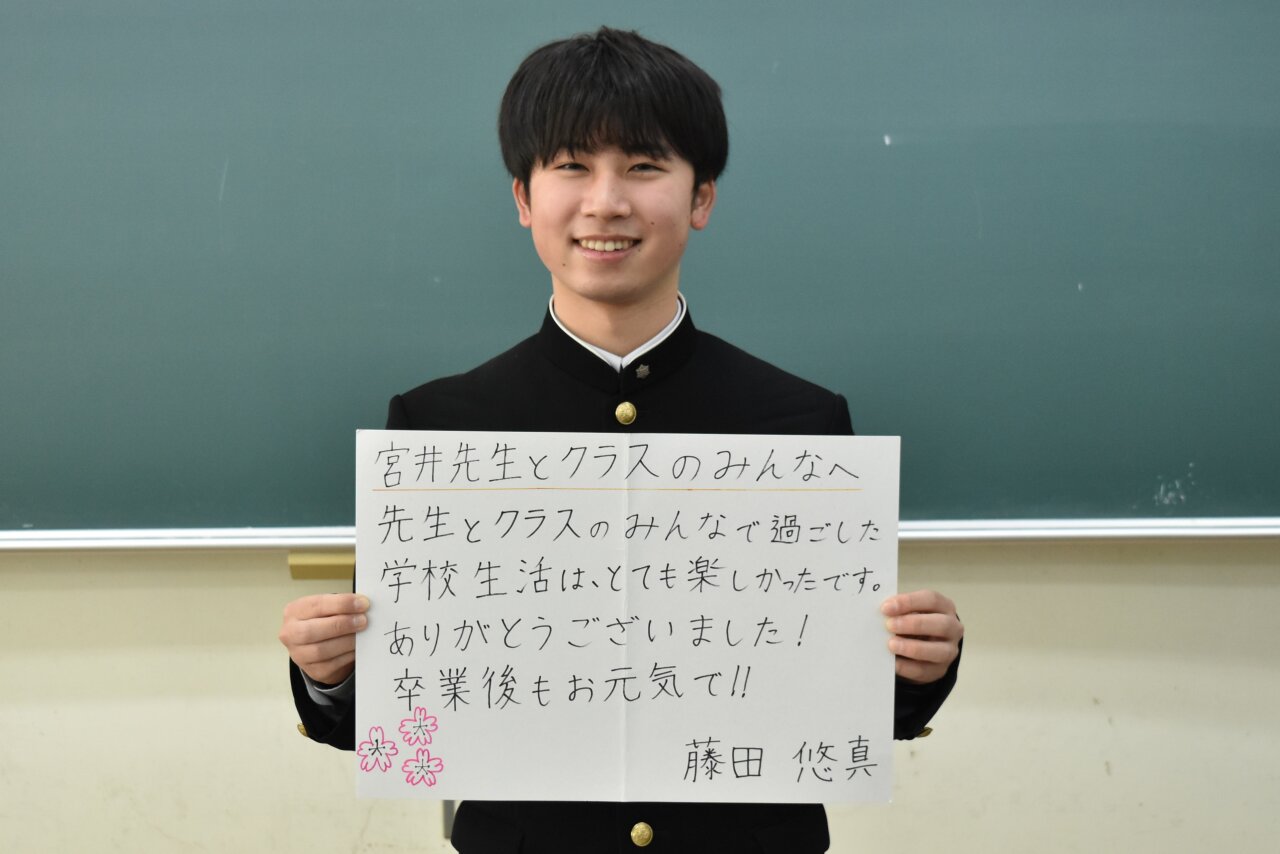 宮井先生とクラスのみんなへ
先生とクラスのみんなで過ごした
学校生活は、とても楽しかったです。
ありがとうございました!
卒業後もお元気で!!
藤田 悠真